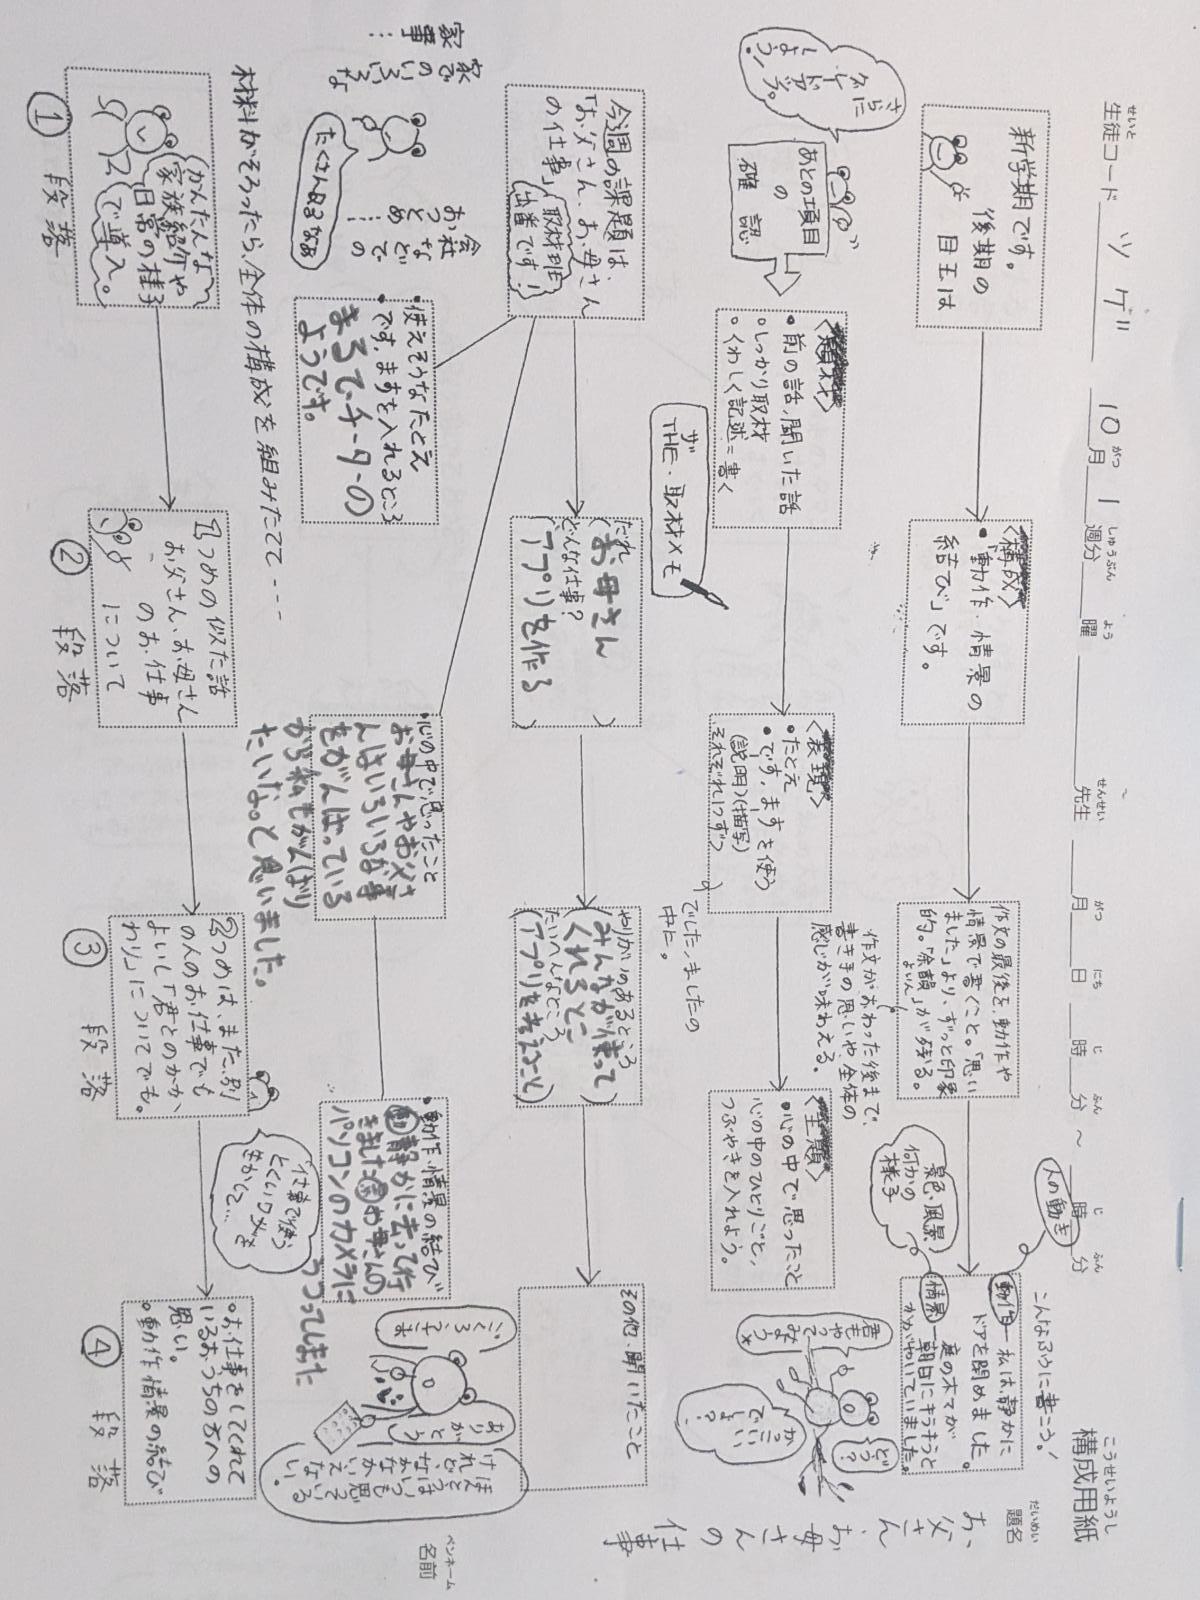 構成用紙
こうせいようし
生徒コード ツゲ 10月1週分 曜 先生 月 日 時 分 ～ 時 分
せいと がつ しゅうぶん よう せんせい がつ にち じ ふん じ ふん
題名
だいめい
お父さん、お母さんの仕事
ペンネーム
名前
新学期です。
後期の
目玉は
〈構成〉
・「動作・情景の
結び」です。
作文の最後を、動作や
情景で書くこと。「思い
ました」より、ずっと印象
的。「余韻」が残る。
よいん
作文がおわった後まで、
書き手の思いや、全体の
感じが味わえる。
こんなふうに書こう！
人の動き
動作―私は、静かに
ドアを閉めました。
景色・風景
何かの
様子
情景―庭の木々が
朝日にキラキラと
かがやいていました。
さらに
グレードアップ
しよう！
あとの項目
の
確認
〈題材〉
・前の話、聞いた話
・しっかり取材
・くわしく記述＝書く
ザ
THE・取材メモ
〈表現〉
・たとえ
・です、ますを使う
(説明)(描写)
それぞれ1つずつ
でした、ましたの
中に。
〈主題〉
・心の中で思ったこと
心の中のひとりごと、
つぶやきを入れよう。
君も
やって
みよう
どう？
かっこ
いい
でしょ？
今週の課題は、
「お父さん、お母さん
の仕事」
取材班
出番です！
家での
いろいろな
家事…
会社
などでの
おつとめ…
たくさんあるなぁ
だれ
(お母さん)
どんな仕事？
(アプリを作る)
やりがいのあるところ
(みんなが使って
くれるとこ)
たいへんなところ
(アプリを考えること)
その他・聞いたこと
・使えそうなたとえ
・です、ますを入れるところ
まるでチーターの
ようです。
・心の中で思ったこと
お母さんやお父さ
んはいろいろな事
をがんばっている
から私もがんばり
たいな。と思いました。
・動作、情景の結び
動 静かに去って行
きました。
お母さんの
パソコンのカメラに
うつってしまった
ごくろうさま
ありがとう
ほんとうは
いつも思っている
けれど、なかなか
いえない。
材料がそろったら、全体の構成を組みたてて----
かんたんな
家族紹介や
日常の様子
で導入。
① 段落
1つめの似た話
お父さん、お母さん
のお仕事
について
② 段落
2つめは、また、別
の人のお仕事でも
よいし「君とのかか
わり」についてでも。
③ 段落
仕事で使う
とくいワザを
生かして…
・お仕事をしてくれて
いるおうちの方への
思い。
・動作情景の結び
④ 段落